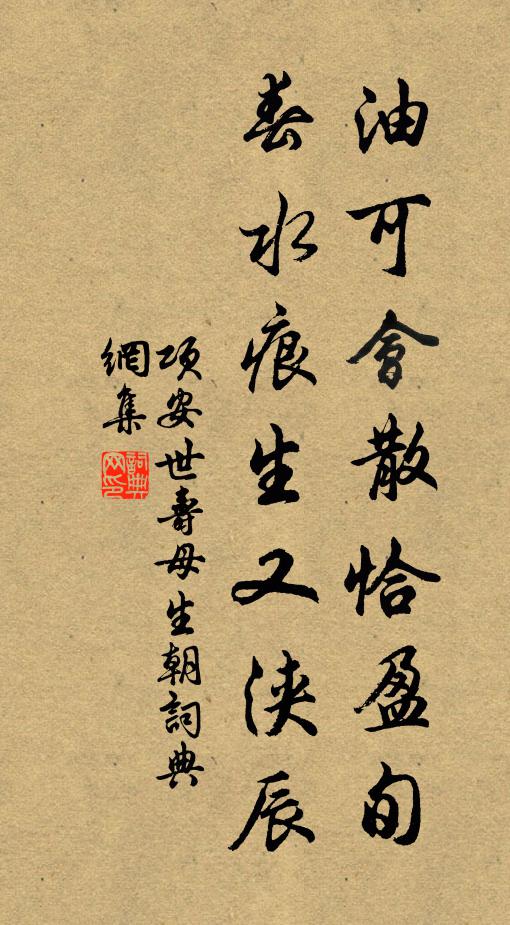 油可會散恰盈旬
春水痕生又浹辰
項安世壽母生朝詞典
網集
詞典網印